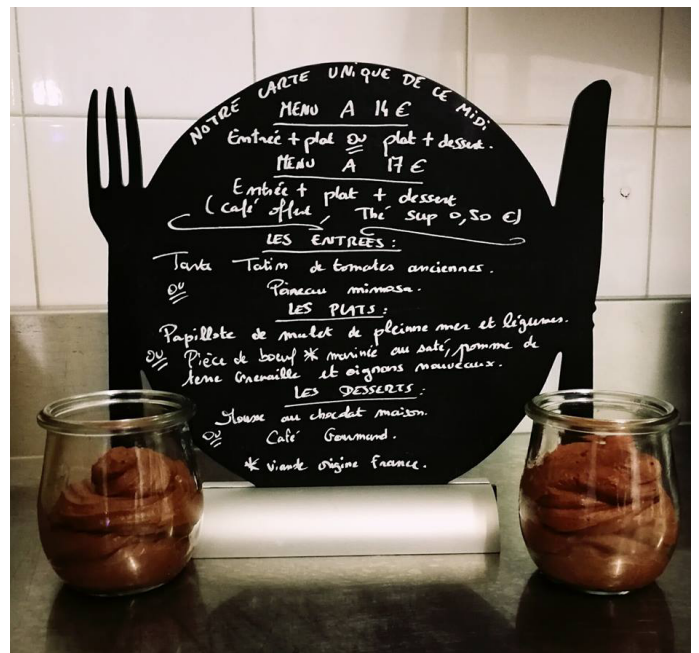 NOTRE CARTE UNIQUE DE CE MIDI
MENU A 14 €
Entrée + plat ou plat + dessert.
MENU A 17 €
Entrée + plat + dessert
(café offert, Thé sup 0,50 €)
LES ENTREES :
Tarte Tatin de tomates anciennes.
ou Poireau mimosa.
LES PLATS :
Papillote de mulet de pleinne mer et légumes.
ou Pièce de boeuf * marinée au saté, pomme de
terre Grenaille et oignons nouveaux.
LES DESSERTS :
Mousse au chocolat maison.
ou Café Gourmand.
* viande origine France.